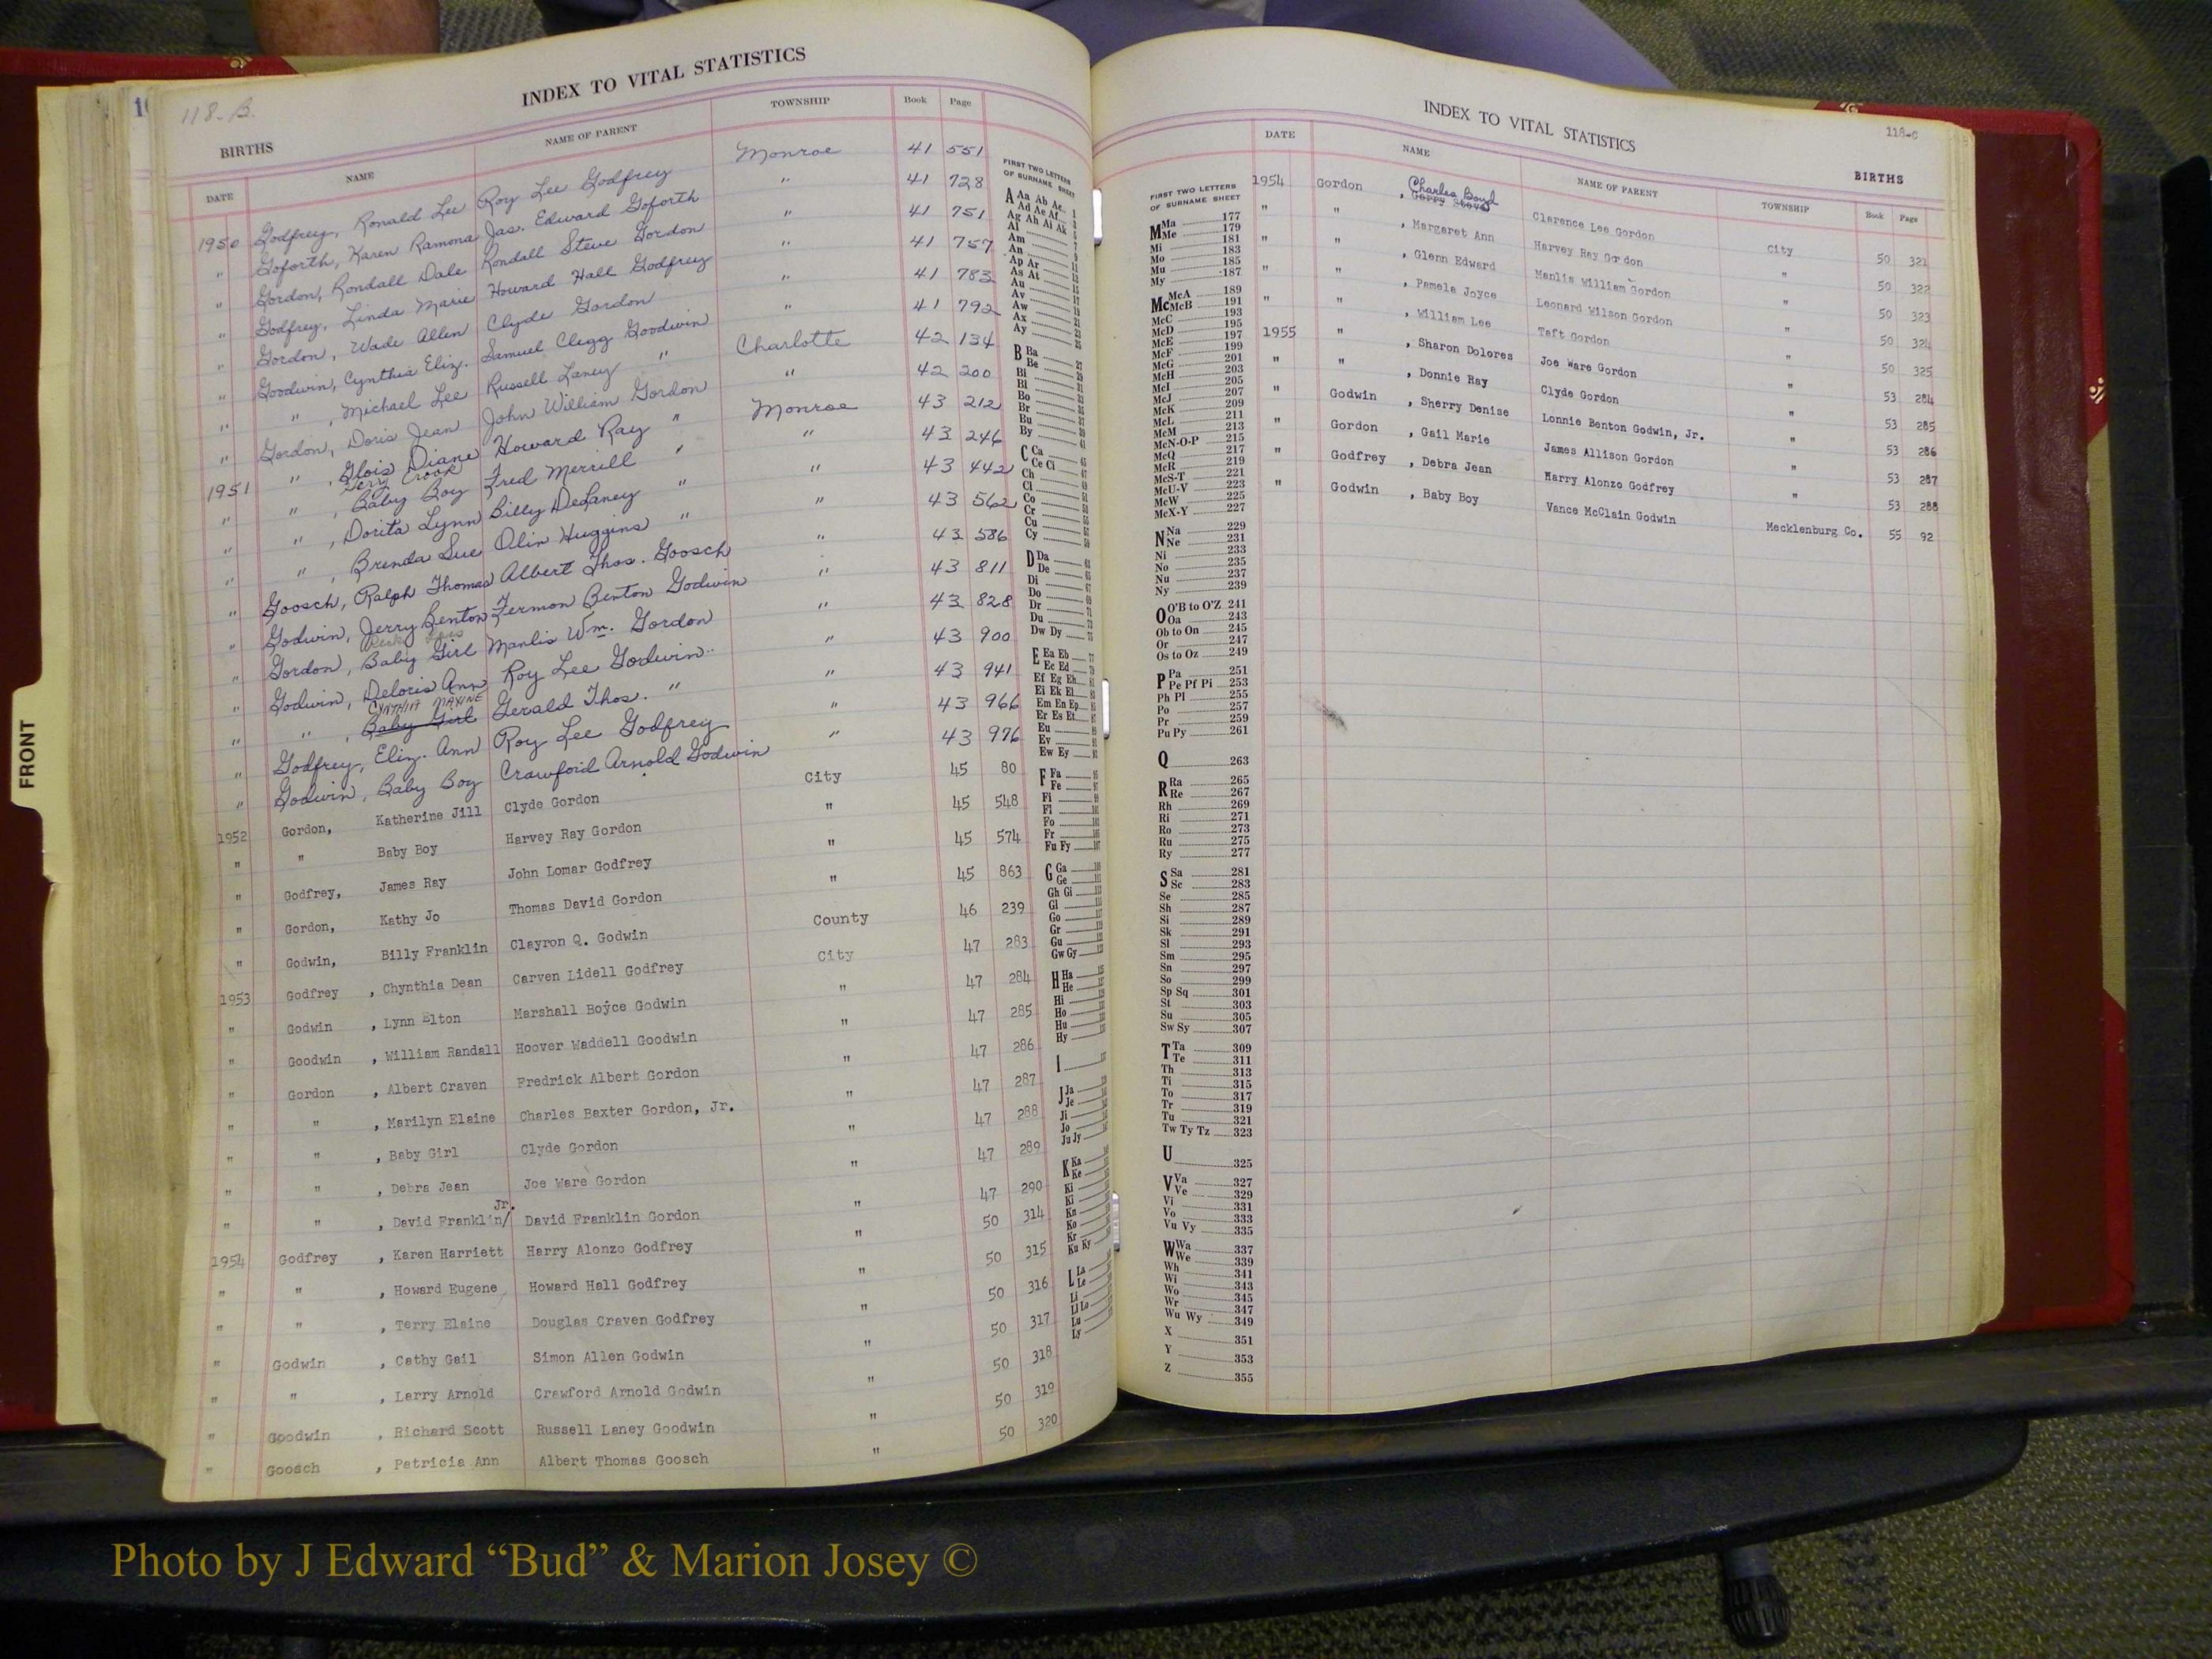 118-B.
INDEX TO VITAL STATISTICS
BIRTHS
DATE NAME NAME OF PARENT TOWNSHIP Book Page
1950 Godfrey, Ronald Lee Roy Lee Godfrey Monroe 41 551
" Goforth, Karen Ramona Jas. Edward Goforth " 41 728
" Gordon, Rondall Dale Rondall Steve Gordon " 41 751
" Godfrey, Linda Marie Howard Hall Godfrey " 41 757
" Gordon, Wade Allen Clyde Gordon " 41 783
" Goodwin, Cynthia Eliz. Samuel Clegg Goodwin " 41 792
" " , Michael Lee Russell Laney " Charlotte 42 134
" Gordon, Doris Jean John William Gordon " 42 200
1951 " , Glois Diane Howard Ray " Monroe 43 212
Terry Crook
" " , Baby Boy Fred Merrill " " 43 246
" " , Dorita Lynn Billy DeLaney " " 43 442
" " , Brenda Sue Olin Huggins " " 43 562
" Goosch, Ralph Thomas Albert Thos. Goosch " 43 586
" Godwin, Jerry Benton Fermon Benton Godwin " 43 811
" Gordon, Baby Girl Manlis Wm. Gordon " 43 828
" Godwin, Deloris Ann Roy Lee Godwin " 43 900
CYNTHIA MAXINE
" " , Baby Girl Gerald Thos. " " 43 941
" Godfrey, Eliz. Ann Roy Lee Godfrey " 43 966
" Godwin, Baby Boy Crawford Arnold Godwin " 43 976
1952 Gordon, Katherine Jill Clyde Gordon City 45 80
" " Baby Boy Harvey Ray Gordon " 45 548
" Godfrey, James Ray John Lomar Godfrey " 45 574
" Gordon, Kathy Jo Thomas David Gordon " 45 863
" Godwin, Billy Franklin Clayron Q. Godwin County 46 239
1953 Godfrey , Chynthia Dean Carven Lidell Godfrey City 47 283
" Godwin , Lynn Elton Marshall Boyce Godwin " 47 284
" Goodwin , William Randall Hoover Waddell Goodwin " 47 285
" Gordon , Albert Craven Fredrick Albert Gordon " 47 286
" " , Marilyn Elaine Charles Baxter Gordon, Jr. " 47 287
" " , Baby Girl Clyde Gordon " 47 288
" " , Debra Jean Joe Ware Gordon " 47 289
" " , David Franklin/ Jr. David Franklin Gordon " 47 290
1954 Godfrey , Karen Harriett Harry Alonzo Godfrey " 50 314
" " , Howard Eugene Howard Hall Godfrey " 50 315
" " , Terry Elaine Douglas Craven Godfrey " 50 316
" Godwin , Cathy Gail Simon Allen Godwin " 50 317
" " , Larry Arnold Crawford Arnold Godwin " 50 318
" Goodwin , Richard Scott Russell Laney Goodwin " 50 319
" Goosch , Patricia Ann Albert Thomas Goosch " 50 320
FIRST TWO LETTERS
OF SURNAME SHEET
A Aa Ab Ac 1
Ad Ae Af
Ag Ah Ai Ak
Al
Am
An
Ap Ar
As At
Au
Av
Aw
Ax
Ay
B Ba
Be
Bi
Bl
Bo
Br
Bu
By
C Ca
Ce Ci
Ch
Cl
Co
Cr
Cu
Cy
D Da
De
Di
Do
Dr
Du
Dw Dy
E Ea Eb
Ec Ed
Ef Eg Eh
Ei Ek El
Em En Ep
Er Es Et
Eu
Ev
Ew Ey
F Fa
Fe
Fi
Fl
Fo
Fr
Fu Fy
G Ga
Ge
Gh Gi
Gl
Go
Gr
Gu
Gw Gy
H Ha
He
Hi
Ho
Hu
Hy
I
J Ja
Je
Ji
Jo
Ju Jy
K Ka
Ke
Ki
Kl
Kn
Ko
Kr
Ku Ky
L La
Le
Li
Ll Lo
Lu
Ly
FRONT
INDEX TO VITAL STATISTICS
118-C
BIRTHS
DATE NAME NAME OF PARENT TOWNSHIP Book Page
Charles Boyd
1954 Gordon , Clarence Lee Gordon City 50 321
" " , Margaret Ann Harvey Ray Gordon " 50 322
" " , Glenn Edward Manlis William Gordon " 50 323
" " , Pamela Joyce Leonard Wilson Gordon " 50 324
" " , William Lee Taft Gordon " 50 325
1955 " , Sharon Dolores Joe Ware Gordon " 53 284
" " , Donnie Ray Clyde Gordon " 53 285
" Godwin , Sherry Denise Lonnie Benton Godwin, Jr. " 53 286
" Gordon , Gail Marie James Allison Gordon " 53 287
" Godfrey , Debra Jean Harry Alonzo Godfrey " 53 288
" Godwin , Baby Boy Vance McClain Godwin Mecklenburg Co. 55 92
FIRST TWO LETTERS
OF SURNAME SHEET
M Ma 177
Me 179
Mi 181
Mo 183
Mu 185
My 187
Mc McA 189
McB 191
McC 193
McD 195
McE 197
McF 199
McG 201
McH 203
McI 205
McJ 207
McK 209
McL 211
McM 213
McN-O-P 215
McQ 217
McR 219
McS-T 221
McU-V 223
McW 225
McX-Y 227
N Na 229
Ne 231
Ni 233
No 235
Nu 237
Ny 239
O O'B to O'Z 241
Oa 243
Ob to On 245
Or 247
Os to Oz 249
P Pa 251
Pe Pf Pi 253
Ph Pl 255
Po 257
Pr 259
Pu Py 261
Q 263
R Ra 265
Re 267
Rh 269
Ri 271
Ro 273
Ru 275
Ry 277
S Sa 281
Sc 283
Se 285
Sh 287
Si 289
Sk 291
Sl 293
Sm 295
Sn 297
So 299
Sp Sq 301
St 303
Su 305
Sw Sy 307
T Ta 309
Te 311
Th 313
Ti 315
To 317
Tr 319
Tu 321
Tw Ty Tz 323
U 325
V Va 327
Ve 329
Vi 331
Vo 333
Vu Vy 335
W Wa 337
We 339
Wh 341
Wi 343
Wo 345
Wr 347
Wu Wy 349
X 351
Y 353
Z 355
Photo by J Edward “Bud” & Marion Josey ©